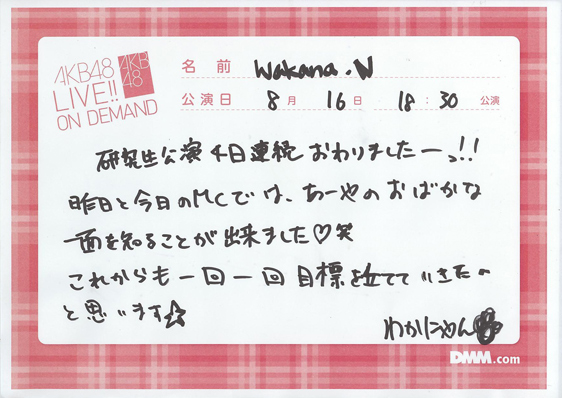 AKB48
LIVE!!
ON DEMAND
AKB
48
名前 Wakana.N
公演日 8月 16日 18:30 公演
研究生公演4日連続おわりましたーっ!!
昨日と今日のMCでは、あーやのおばかな
一面を知ることが出来ました♡笑
これからも一回一回目標を立てていきたい
と思います☆
わかにゃん
DMM.com